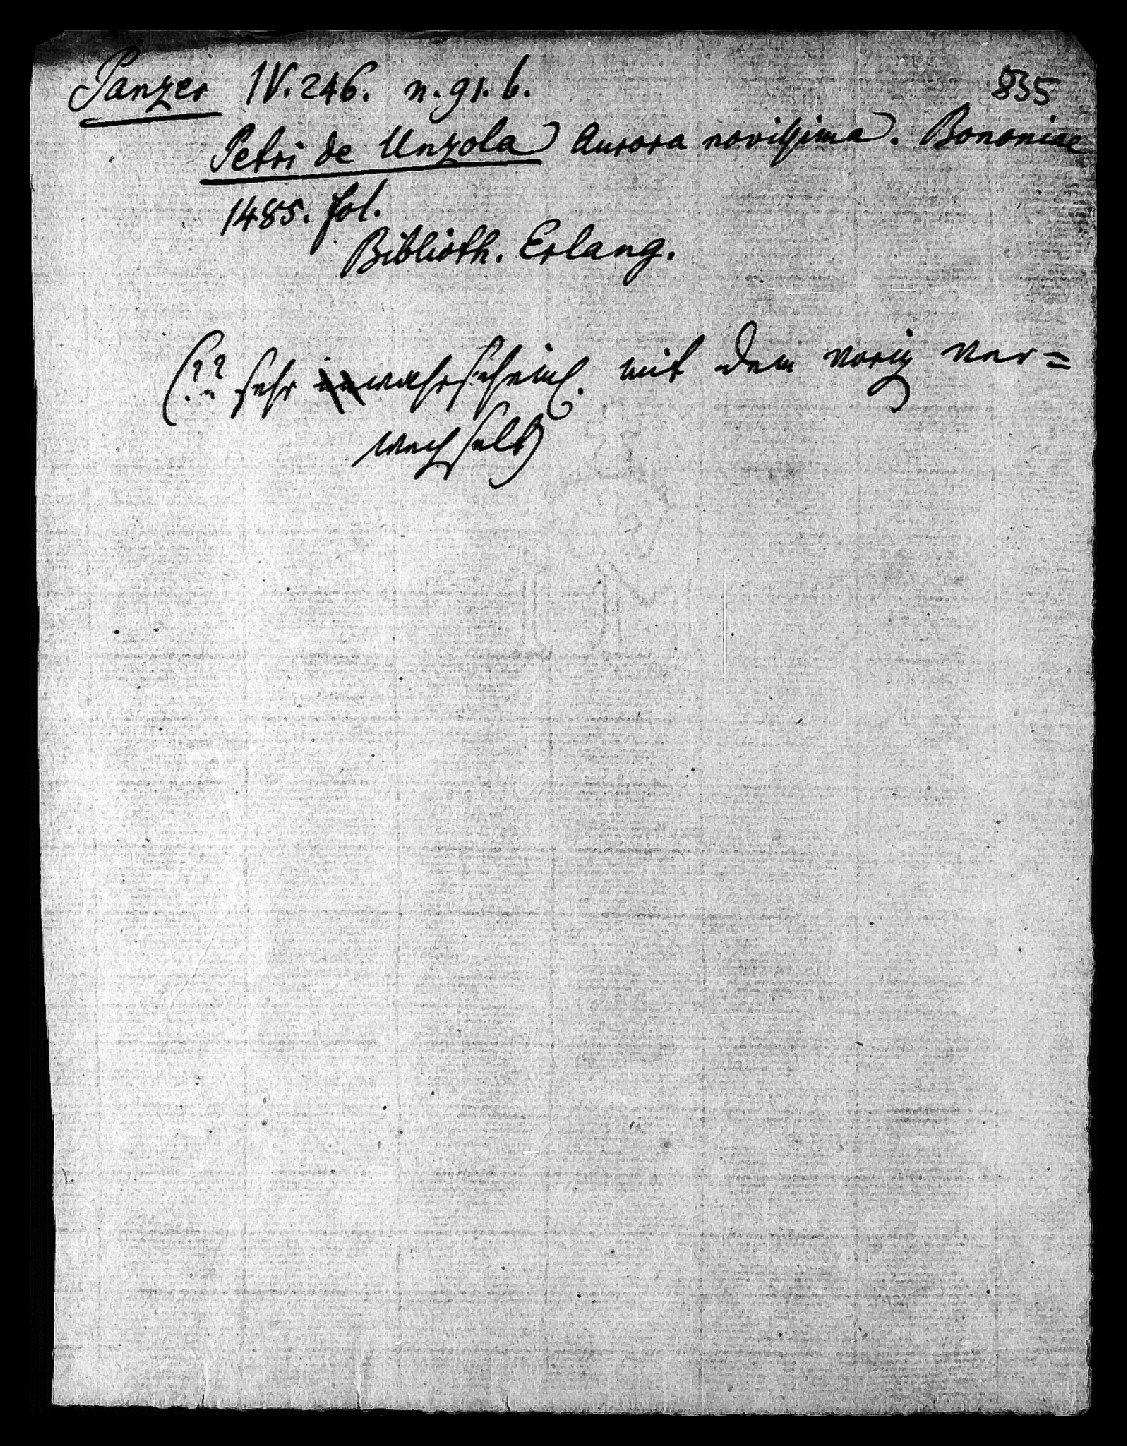 Panzer IV. 246. n. 91. b. 835
Petri de Unzola Aurora novissima. Bononiae
1485. fol.
Biblioth. Erlang.
(?? sehr wahrscheinl. mit dem vorig ver=
wechselt)